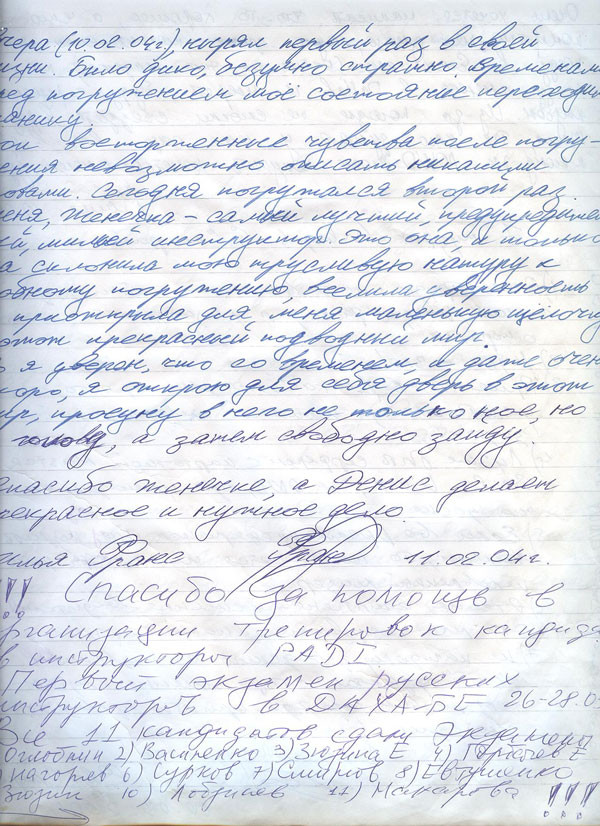 чера (10.02.04г.), нырял первый раз в своей
изни. Было дико, безумно страшно. Временами
ред погружением моё состояние переходи
панику
ои восторженные чувства после погру-
ения невозможно описать никакими
овами. Сегодня погружался второй раз.
еня, Женечка - самый лучший, предупредител
й, милый инструктор. Это она, и только
а склонила мою трусливую натуру к
обному погружению, вселила уверенность
приоткрыла для меня маленькую щёлочку
этот прекрасный подводный мир.
я уверен, что со временем, и даже очен
оро, я открою для себя дверь в этот
ир, просуну в него не только нос, но
голову, а затем свободно зайду.
спасибо Женечке, а Денис делает
рекрасное и нужное дело.
Илья Фракс 11.02.04г.
!! Спасибо за помощь в
рганизации тренировок кандида
в инструктора PADI
Первый экзамен русских
инструкторов в ДАХАБЕ 26-28.0
Все 11 кандидатов сдали экзамены
Оглоблин 2) Василенко 3) Зюзина Е 4) Горбачев Е
6) Сурков 7) Смирнов 8) Евтушенко
Зюзин 10) 11) Макарова !!!